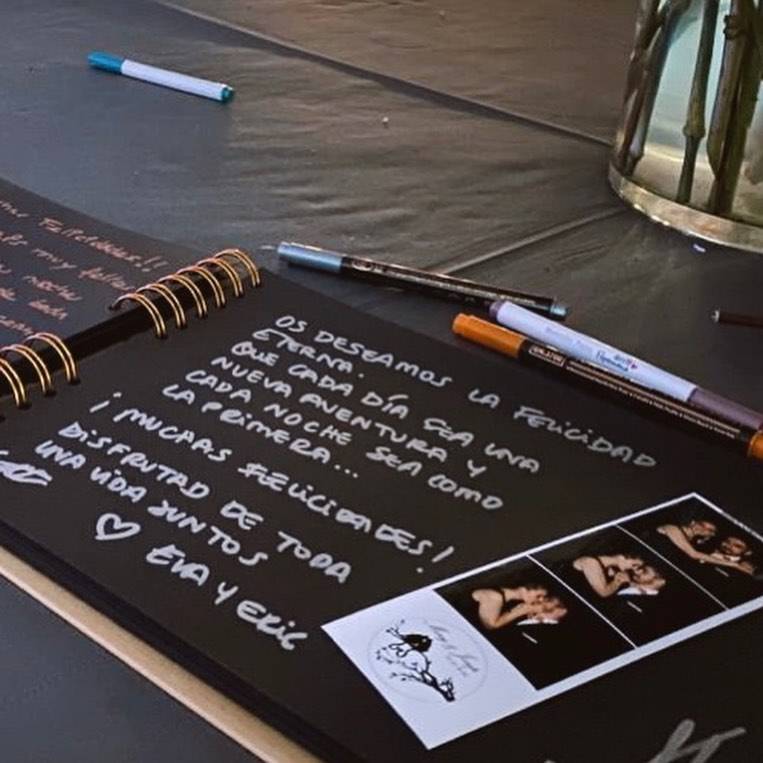 Felicidades!!
muy
noche
OS DESEAMOS LA FELICIDAD
ETERNA.
QUE CADA DÍA SEA UNA
NUEVA AVENTURA Y
CADA NOCHE SEA COMO
LA PRIMERA...
¡MUCHAS FELICIDADES!
DISFRUTAD DE TODA
UNA VIDA JUNTOS
♡ EVA Y ERIC